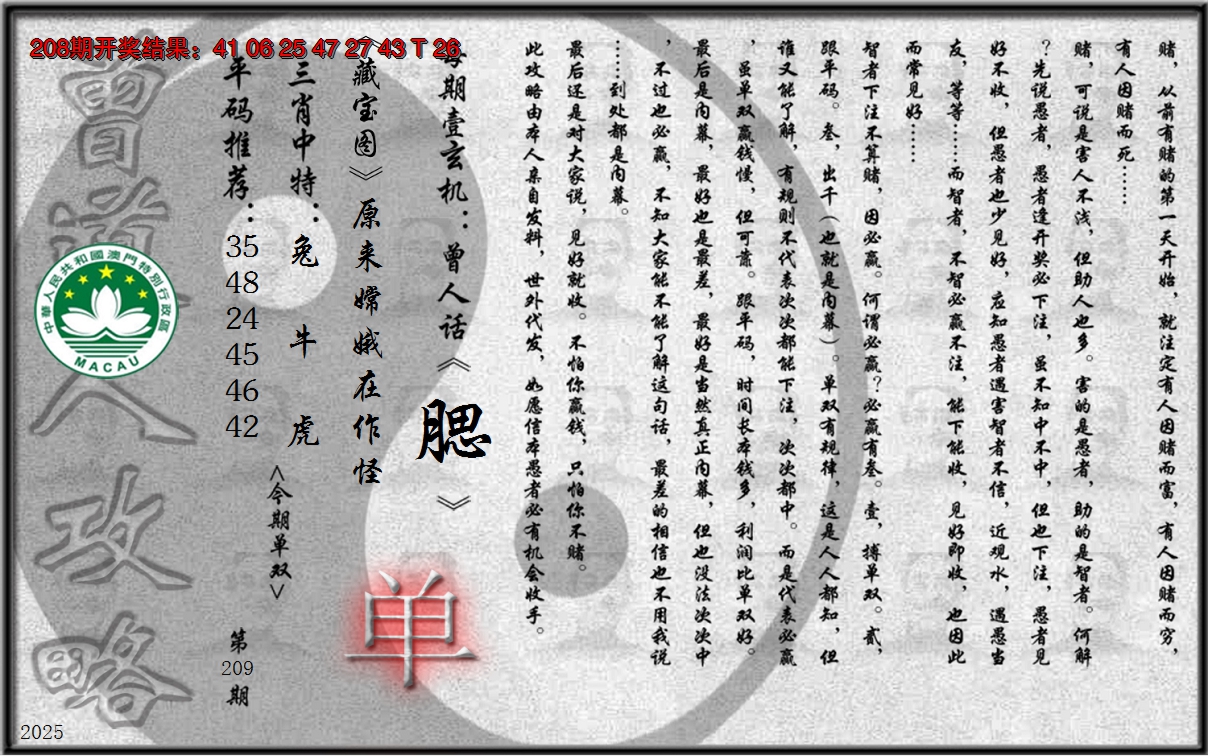 208期开奖结果：41 06 25 47 27 43 T 26
赌，从前有赌的第一天开始，就注定有人因赌而富，有人因赌而穷，
有人因赌而死……
赌，可说是害人不浅，但助人也多。害的是愚者，助的是智者。何解
？先说愚者，愚者逢开奖必下注，虽不知中不中，但也下注，愚者见
好不收，但愚者也少见好，应知愚者遇害智者不信，近观水，遇愚当
友，等等……而智者，不智必赢不注，能下能收，见好即收，也因此
而常见好……
智者下注不算赌，因必赢。何谓必赢？必赢有叁。壹，搏单双。贰，
跟平码。叁，出千（也就是内幕）。单双有规律，这是人人都知，但
谁又能了解，有规则不代表次次都能下注，次次都中。而是代表必赢
，虽单双赢钱慢，但可靠。跟平码，时间长本钱多，利润比单双好。
最后是内幕，最好也是最差，最好是当然真正内幕，但也没法次次中
，不过也必赢，不知大家能不能了解这句话，最差的相信也不用我说
……到处都是内幕。
最后还是对大家说，见好就收。不怕你赢钱，只怕你不赌。
此攻略由本人亲自发料，世外代发，如愿信本愚者必有机会收手。
每期壹玄机：曾人话《腮》
《藏宝图》原来嫦娥在作怪
单
三肖中特：兔 牛 虎
<今期单双>
平码推荐：35 48 24 45 46 42
第209期
曾道人攻略
中華人民共和國澳門特別行政區
MACAU
2025